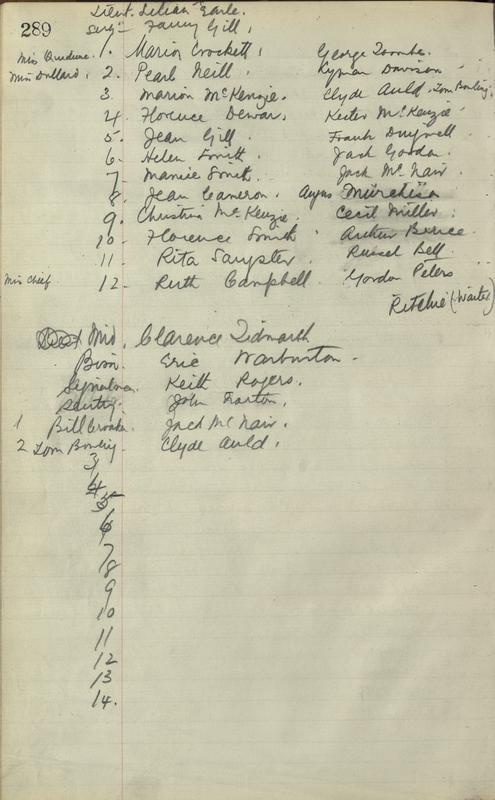 289
Lieut. Lilian Earle.
Serg- Fanny Gill,
Miss Prudence. 1. Marion Crockett, George Toombe.
Miss Dullard, 2. Pearl Neill. Kyman Davison
3. Marion McKenzie. Clyde Auld. Tom Bowling.
4. Florence Dewar. Keiter McKenzie
5. Jean Gill. Frank
6. Helen Smith. Jack Gordon.
7. Mamie Smith. Jack McNair.
8. Jean Cameron. Angus Murchison
9. Christina McKenzie. Cecil Miller.
10- Florence Smith Arthur Bruce.
11- Rita Sangster. Russel Bell.
Miss Chief. 12- Ruth Campbell. Gordon Peters
Ritchie (Waiter)
Mid. Clarence Tidmarsh
Bosn. Eric Warburton-
Signalman. Keith Rogers.
Sentry. John
1 Bill Croaker. Jack McNair.
2 Tom Bowling- Clyde Auld.
3
4
5
6
7
8
9
10
11
12
13
14.